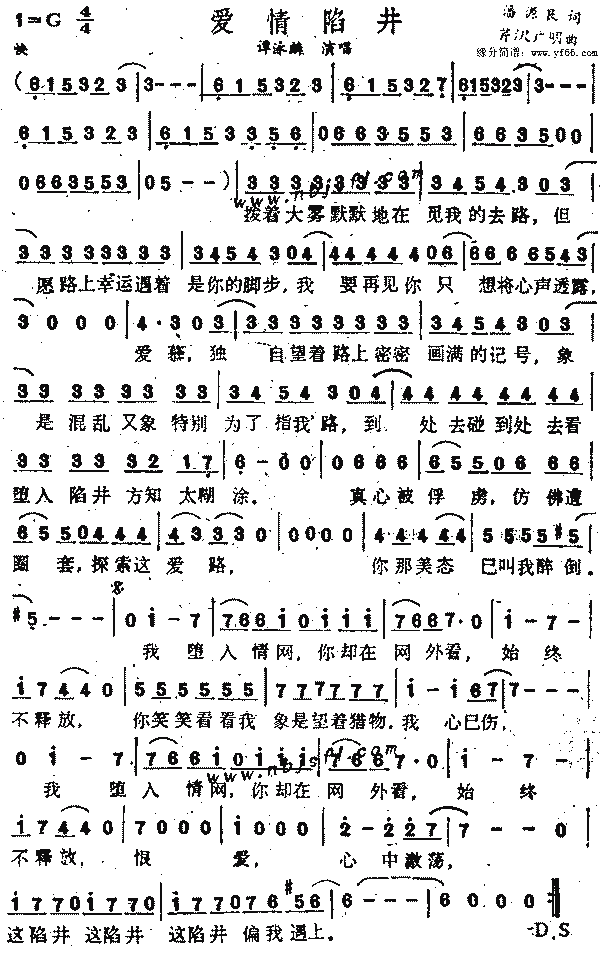 1=G 4/4 爱情陷井 潘源良 词
芹沢广明 曲
快 谭泳麟 演唱 缘分简谱: www.yf66.com
(6 1 5 3 2 3 | 3 - - - | 6 1 5 3 2 3 | 6 1 5 3 2 7 | 6 1 5 3 2 3 | 3 - - -
6 1 5 3 2 3 | 6 1 5 3 3 5 6 | 0 6 6 3 5 5 3 | 6 6 3 5 0 0
0 6 6 3 5 5 3 | 0 5 - - ) | 3 3 3 3 3 3 3 3 | 3 4 5 4 3 0 3
拨着大雾默默地在 见我的去路,但
3 3 3 3 3 3 3 3 | 3 4 5 4 3 0 4 | 4 4 4 4 4 0 6 | 6 6 6 6 5 4 3
愿路上幸运遇着 是你的脚步,我 要再见你只 想将心声透露,
3 0 0 0 | 4 · 3 0 3 | 3 3 3 3 3 3 3 3 | 3 4 5 4 3 0 3
爱慕,独 自望着路上密密 画满的记号,象
3 3 3 3 3 3 3 3 | 3 4 5 4 3 0 4 | 4 4 4 4 4 4 4 4
是混乱又象特别 为了指我路,到 处去碰到处去看
3 3 3 3 3 2 1 7 | 6 - 0 0 | 0 6 6 6 | 6 5 5 0 6 6 6
堕入陷井方知太糊涂。 真心被俘虏,仿佛遭
6 5 5 0 4 4 4 | 4 3 3 3 0 | 0 0 0 0 | 4 4 4 4 4 | 5 5 5 5 #5
圈套,探索这爱路, 你那美态 已叫我醉倒。
#5 - - - | 0 i - 7 | 7 6 6 i 0 i i i | 7 6 6 7 · 0 | i - 7
我堕入情网,你却在网外看, 始终
i 7 4 4 0 | 5 5 5 5 5 5 | 7 7 7 7 7 7 | i - i 6 7 | 7 - - -
不释放, 你笑笑看看我 象是望着猎物,我 心已伤,
0 i - 7 | 7 6 6 i 0 i i i | 7 6 6 7 · 0 | i - 7
www.nbjspl.com
我堕入情网,你却在网外看, 始终
i 7 4 4 0 | 7 0 0 0 | i 0 0 0 | 2 - 2 2 7 | 7 - - 0
不释放, 恨 爱, 心中激荡,
i 7 7 0 i 7 7 0 | i 7 7 0 7 6 #5 6 | 6 - - - | 6 0 0 0
这陷井 这陷井 这陷井 偏我遇上。 D.S